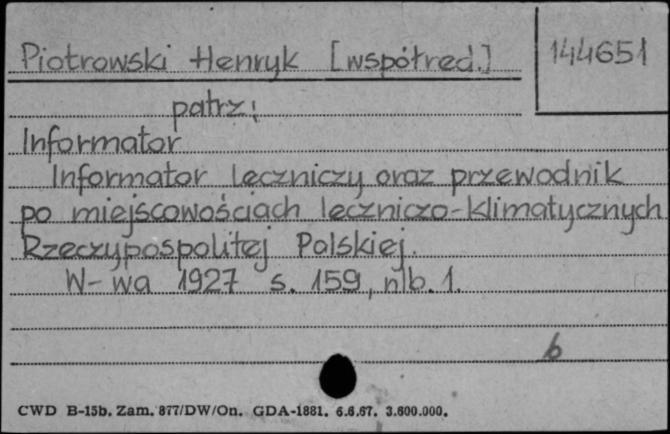 Piotrowski Henryk [współred.]
144651
patrz:
Informator
Informator leczniczy oraz przewodnik
po miejscowościach leczniczo-klimatycznych
Rzeczypospolitej Polskiej.
W-wa 1927 s. 159, nlb. 1.
b
CWD B-15b. Zam. 877/DW/On. GDA-1881. 6.6.67. 3.600.000.